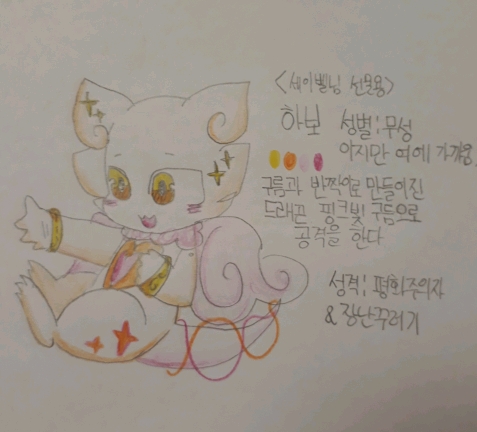 <세이벨님 선물용>
하보 성별:무성
하지만 여에 가까움
구름과 반짝이로 만들어진
드래곤 핑크빛 구름으로
공격을 한다
성격: 평화주의자
& 장난꾸러기